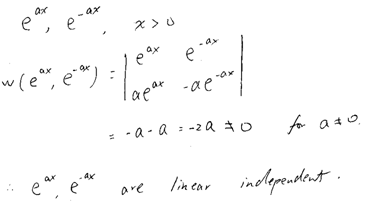 e^{ax}, e^{-ax}, x > 0
w(e^{ax}, e^{-ax}) = | e^{ax} e^{-ax} |
| ae^{ax} -ae^{-ax} |
= -a - a = -2a ≠ 0 for a ≠ 0.
∴ e^{ax}, e^{-ax} are linear independent.